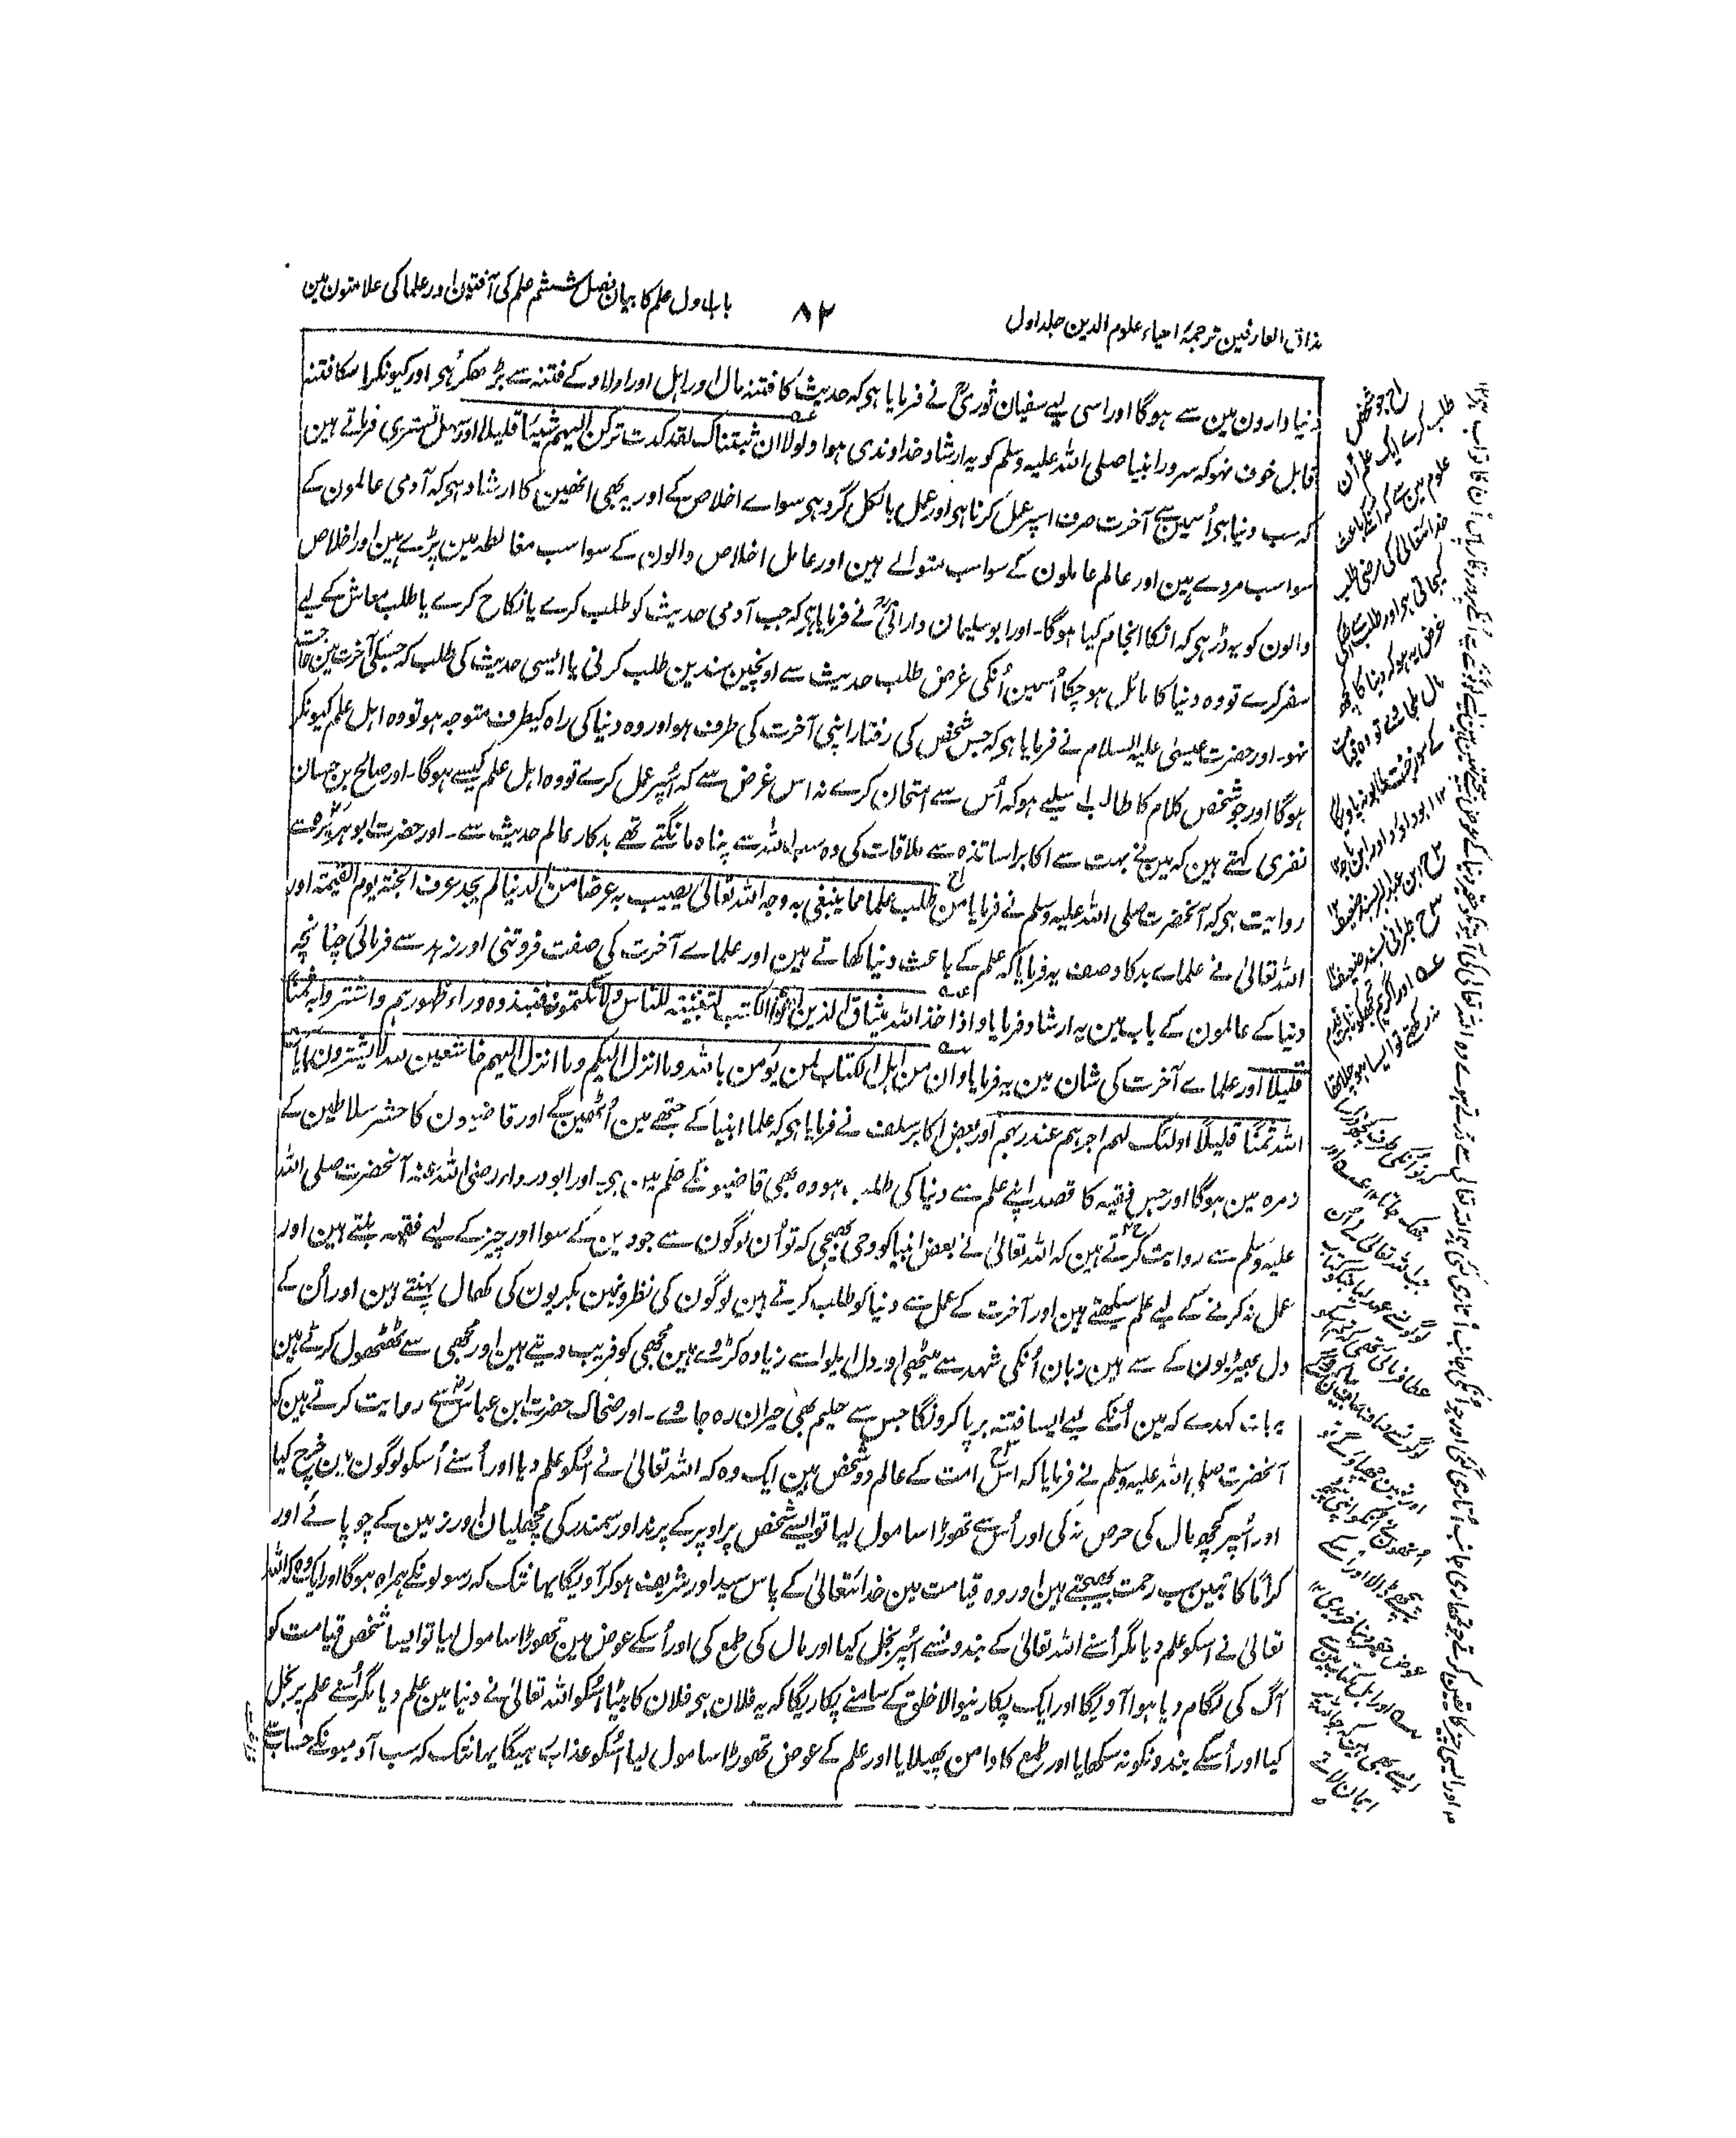 مذاق العارفین ترجمۂ احیاء علوم الدین جلد اول
۸۲
باب اول علم کا بیان فصل ششم علم کی آفتون اور علما کی علامتون مین
دنیا دارون مین سے ہوگا اور اسی لیے سفیان ثوری رح نے فرمایا ہی کہ حدیث کا فتنہ مال اور اہل اور اولاد کے فتنہ سے بڑھکر ہی اور کیونکر اسکا فتنہ
قابل خوف نہو کہ سرور انبیا صلی اللہ علیہ وسلم کو یہ ارشاد خداوندی ہوا ولولا ان ثبتناک لقد کدت ترکن الیہم شیئا قلیلا اور سہل تستری فرماتے ہین
کہ سب دنیا ہی اُسمین سے آخرت صرف اسپر عمل کرنا ہی اور عمل بالکل گرد ہی سواے اخلاص کے اور یہ بھی انھین کا ارشاد ہی کہ آدمی عالمون کے
سوا سب مردے ہین اور عالم عاملون کے سوا سب متوالے ہین اور عامل اخلاص والون کے سوا سب مغالطہ مین پڑے ہین اور اخلاص
والون کو یہ ڈر ہی کہ انکا انجام کیا ہوگا۔ اور ابو سلیمان دارانی رح نے فرمایا ہی کہ جب آدمی حدیث کو طلب کرے یا نکاح کرے یا طلب معاش کے لیے
سفر کرے تو وہ دنیا کا مائل ہو چکا اُسمین اُنکی غرض طلب حدیث سے اونچین سندین طلب کرنی یا ایسی حدیث کی طلب کہ جسکی آخرت مین حاجت
نہو۔ اور حضرت عیسیٰ علیہ السلام نے فرمایا ہی کہ جس شخص کی رفتار اپنی آخرت کی طرف ہو اور وہ دنیا کی راہ کیطرف متوجہ ہو تو وہ اہل علم کیونکر
ہوگا اور جو شخص کلام کا طالب اسلیے ہو کہ اُس سے امتحان کرے نہ اس غرض سے کہ اُسپر عمل کرے تو وہ اہل علم کیسے ہوگا۔ اور صالح بن حسان
نضری کہتے ہین کہ مین نے بہت سے اکابر اساتذہ سے ملاقات کی وہ سب اللہ سے پناہ مانگتے تھے بدکار عالم حدیث سے۔ اور حضرت ابو ہریرہ سے
روایت ہی کہ آنحضرت صلی اللہ علیہ وسلم نے فرمایا من طلب علما مما یبتغی بہ وجہ اللہ تعالیٰ یصیب بہ عرضا من الدنیا لم یجد عرف الجنۃ یوم القیمۃ اور
اللہ تعالیٰ نے علماے بد کا وصف یہ فرمایا کہ علم کے باعث دنیا کھاتے ہین اور علماے آخرت کی صفت فروتنی اور زہد سے فرمائی چنانچہ
دنیا کے عالمون کے باب مین یہ ارشاد فرمایا واذا خذ اللہ میثاق الذین اوتوا الکتب لتبیننہ للناس ولا تکتمونہ فنبذوہ وراء ظہورہم واشتروا بہ ثمنًا
قلیلًا اور علماے آخرت کی شان مین یہ فرمایا وان من اہل الکتاب لمن یؤمن باللہ وما انزل الیکم وما انزل الیہم خاشعین للہ لا یشترون بآیات
اللہ ثمنًا قلیلًا اولئک لہم اجرہم عند ربہم اور بعض اکابر سلف نے فرمایا ہی کہ علما انبیا کے جتھے مین اُٹھین گے اور قاضیون کا حشر سلاطین کے
زمرہ مین ہوگا اور جس فقیہ کا قصد اپنے علم سے دنیا کی طلب ہو وہ بھی قاضیونکے حکم مین ہی اور ابو درداء رضی اللہ عنہ آنحضرت صلی اللہ
علیہ وسلم سے روایت کرتے ہین کہ اللہ تعالیٰ نے بعض انبیا کو وحی بھیجی کہ تو اُن لوگون سے جو دین کے سوا اور چیز کے لیے فقیہ بنتے ہین اور
عمل نہ کرنے کے لیے علم سیکھتے ہین اور آخرت کے عمل سے دنیا کو طلب کرتے ہین لوگون کی نظرونمین بکریون کی کھال پہنتے ہین اور اُن کے
دل بھیڑیون کے سے ہین زبان اُنکی شہد سے میٹھی اور دل ایلوا سے زیادہ کڑوے ہین مجھی کو فریب دیتے ہین اور مجھی سے ٹھٹھول کرتے ہین
یہ بات کہدے کہ مین اُنکے لیے ایسا فتنہ برپا کرونگا جس سے حلیم بھی حیران رہ جاوے۔ اور ضحاک حضرت ابن عباس رض سے روایت کرتے ہین کہ
آنحضرت صلی اللہ علیہ وسلم نے فرمایا کہ اس امت کے عالم دو شخص ہین ایک وہ کہ اللہ تعالیٰ نے اُسکو علم دیا اور اُسنے اُسکو لوگون مین خرچ کیا
اور اُسپر کچھ مال کی حرص نہ کی اور اُس سے تھوڑا سا مول لیا تو ایسے شخص پر اوپر کے پرند اور سمندر کی مچھلیان اور زمین کے چوپائے اور
کرامًا کاتبین سب رحمت بھیجتے ہین اور وہ قیامت مین خدا تعالیٰ کے پاس سید اور شریف ہو کر آویگا یہانتک کہ رسولونکے ہمراہ ہوگا اور ایک وہ کہ اللہ
تعالیٰ نے اسکو علم دیا مگر اُسنے اللہ تعالیٰ کے بندونسے اُسپر بخل کیا اور مال کی طمع کی اور اُسکے عوض مین تھوڑا سا مول لیا تو ایسا شخص قیامت کو
آگ کی لگام دیا ہوا آویگا اور ایک پکارنیوالا خلق کے سامنے پکاریگا کہ یہ فلان ہی فلان کا بیٹا اُسکو اللہ تعالیٰ نے دنیا مین علم دیا مگر اُسنے علم پر بخل
کیا اور اُسکے بندونکو نہ سکھایا اور طمع کا دامن پھیلایا اور علم کے عوض تھوڑا سا مول لیا اُسکو عذاب ہیگا یہانتک کہ سب آدمیونکے حساب سے
جو شخص
طلب کرے ایک علم اُن
علوم مین سے کہ جنکے باعث
خدا تعالیٰ کی رضی طلب
کیجاتی ہی اور طلب سے اسکی
غرض یہ ہو کہ دنیا کا کچھ
مال ملجاوے تو وہ قیامت
ابوداؤد اور ابن ماجہ
ابن عبدالبر بسند ضعیف
طبرانی بسند ضعیف
اور اگر ہم تجھکو ثابت قدم
نہ رکھتے تو ایسا ہو چلا تھا